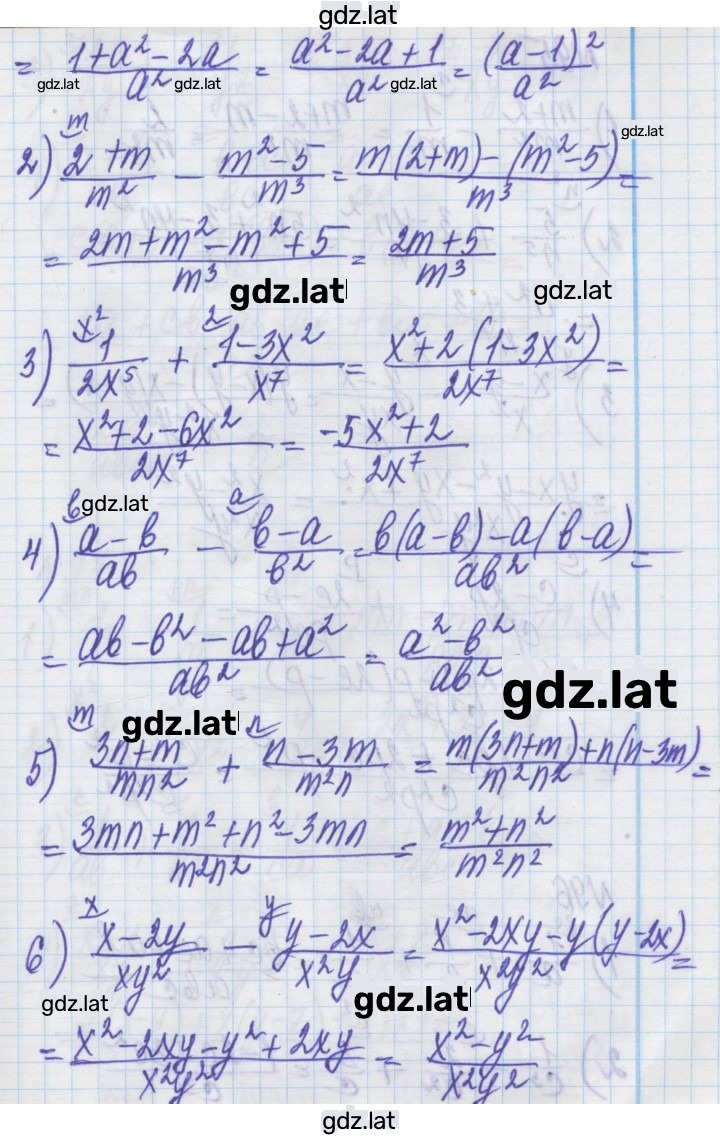 gdz.lat
= 1+a²-2a/a² = a²-2a+1/a² = (a-1)²/a²
gdz.lat gdz.lat gdz.lat
m
2) 2+m/m² - m²-5/m³ = m(2+m)-(m²-5)/m³ =
gdz.lat
= 2m+m²-m²+5/m³ = 2m+5/m³
gdz.lat gdz.lat
x² 2
3) 1/2x⁵ + 1-3x²/x⁷ = x²+2(1-3x²)/2x⁷ =
= x²+2-6x²/2x⁷ = -5x²+2/2x⁷
b gdz.lat a
4) a-b/ab - b-a/b² = b(a-b)-a(b-a)/ab² =
= ab-b²-ab+a²/ab² = a²-b²/ab²
gdz.lat
m gdz.lat n
5) 3n+m/mn² + n-3m/m²n = m(3n+m)+n(n-3m)/m²n² =
= 3mn+m²+n²-3mn/m²n² = m²+n²/m²n²
x y
6) x-2y/xy² - y-2x/x²y = x²-2xy-y(y-2x)/x²y² =
gdz.lat gdz.lat
= x²-2xy-y²+2xy/x²y² = x²-y²/x²y².
gdz.lat